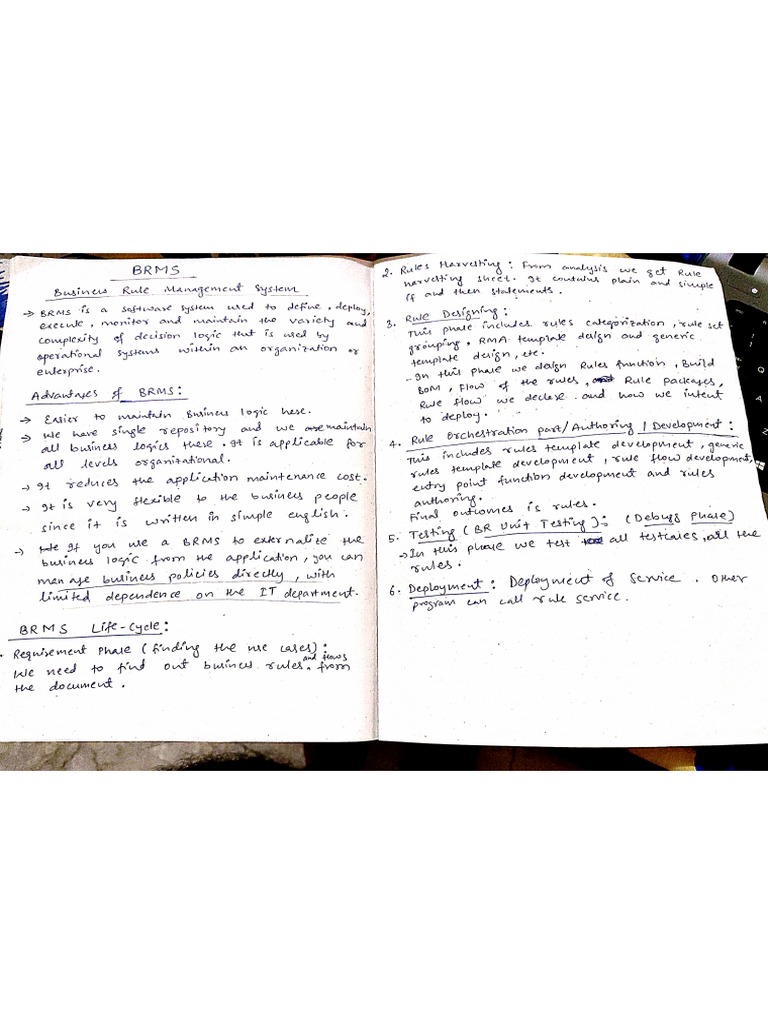 BRMS
Business Rule Management System
→ BRMS is a software system used to define, deploy,
execute, monitor and maintain the variety and
complexity of decision logic that is used by
operational systems within an organization or
enterprise.
Advantages of BRMS:
→ Easier to maintain Business logic here.
→ We have single repository and we are maintain
all business logics there. It is applicable for
all levels organizational.
→ It reduces the application maintenance cost.
→ It is very flexible to the business people
since it is written in simple english.
→ If you use a BRMS to externalize the
business logic from the application, you can
manage business policies directly, with
limited dependence on the IT department.
BRMS Life-Cycle:
Requirement Phase (finding the use cases):
We need to find out business rules and flows from
the document.
2. Rules Harvesting: From analysis we get Rule
harvesting sheet. It contains plain and simple
if and then statements.
3. Rule Designing:
This phase includes rules categorization, rule set
grouping. RMA template design and generic
template design, etc.
- In this phase we design Rules function, Build
BOM, flow of the rules, Rule Packages,
Rule flow we declare and how we intent
to deploy.
4. Rule Orchestration part/Authoring / Development:
This includes rules template development, generic
rules template development, rule flow development,
entry point function development and rules
authoring.
Final outcomes is rules.
5. Testing (BR Unit Testing): (Debugg Phase)
→ In this phase we test all testcases, all the
rules.
6. Deployment: Deployment of Service. Other
program can call rule service.